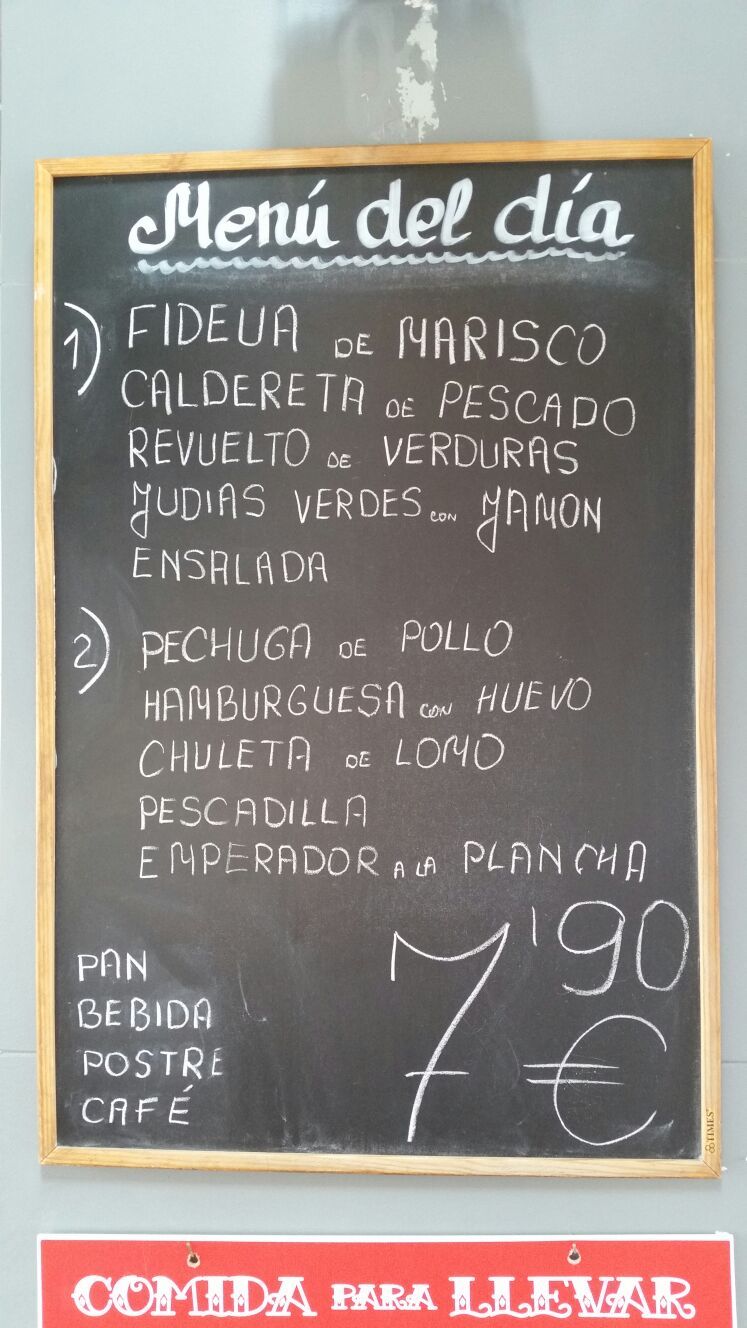 Menú del día
1) FIDEUA DE MARISCO
CALDERETA DE PESCADO
REVUELTO DE VERDURAS
JUDIAS VERDES CON JAMON
ENSALADA
2) PECHUGA DE POLLO
HAMBURGUESA CON HUEVO
CHULETA DE LOMO
PESCADILLA
EMPERADOR A LA PLANCHA
PAN
BEBIDA
POSTRE
CAFÉ
7'90 €
TIMES
COMIDA PARA LLEVAR